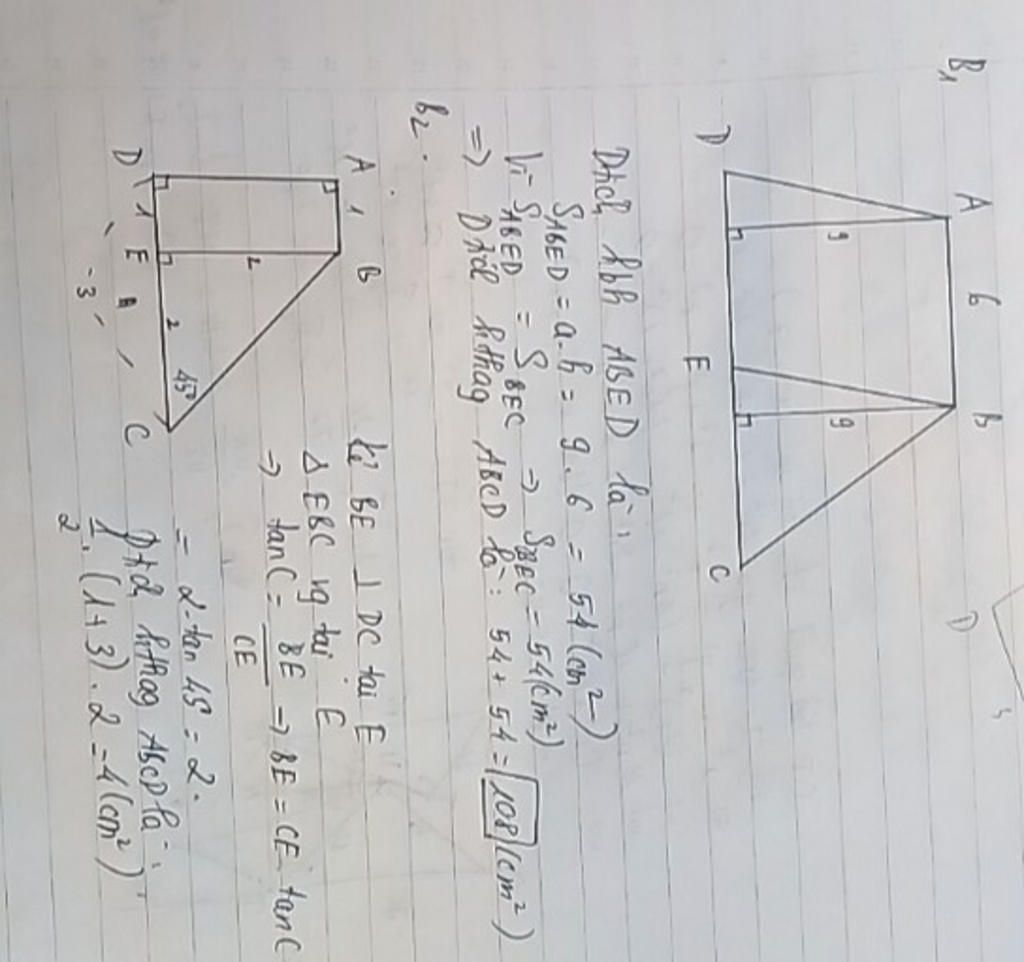 B1
A 6 B
9 9
D E C
D
Dtích hbh ABED là:
SABED = a.h = 9.6 = 54 (cm²)
Vì SABED = SBEC → SBEC = 54 (cm²)
=> Dtích hthag ABCD là: 54 + 54 = 108 (cm²)
B2.
A 1 B
2
D 1 E 2 45° C
3
Kẻ BE ⊥ DC tại E
Δ EBC vg tại E
→ tanC = BE/CE → BE = CE tanC
= 2.tan 45 = 2.
Dtích hthag ABCD là:
1/2.(1+3).2 = 4 (cm²)